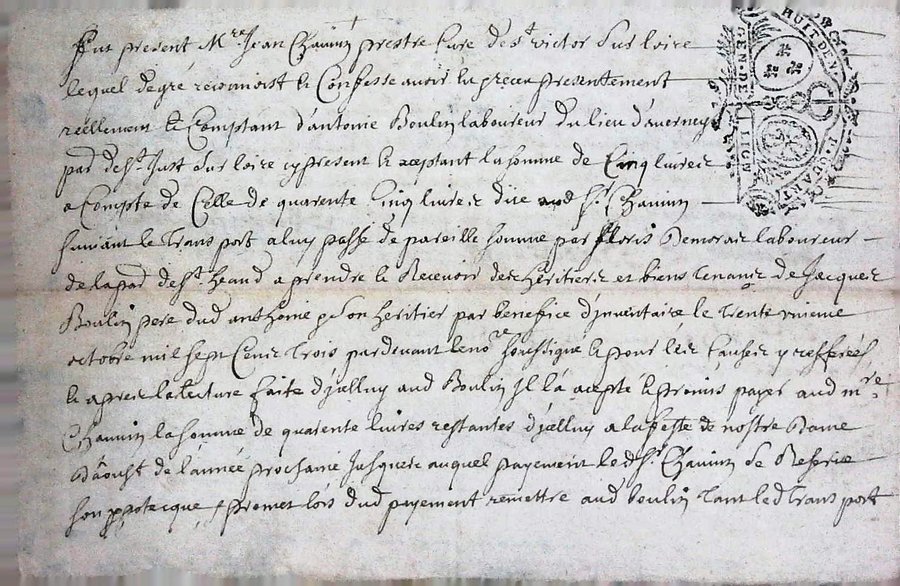 Fut present Mre Jean Chauvin prestre Cure de St victor sur loire
lequel de gré reconnoist & Confesse avoir hu & receu presentement
réellement & Comptant d'antoine Boulin laboureur du lieu d'averney
par de St Just sur loire cy present & aceptant la somme de Cinq livres
a Compte de Celle de quarente Cinq livres düe aud Sr Chauvin
suivant le transport a luy passé de pareille somme par floris Demorais laboureur
de la par de St heand a prendre & Recevoir des héritiers et biens tenans de Jacques
Boulin pere dud anthoine son héritier par benefice d'inventaire le trente unieme
octobre mil sept Cens trois pardevant le nore soussigné & pour les Causes y refferées
& apres lecture faite d'jcelluy aud Boulin Il l'a acepté & promis payer aud mre
Chauvin la somme de quarente livres restantes d'jcelluy a la feste de nostre Dame
D'aoust de l'année prochaine Jusques auquel payement led Sr Chauvin se Reserve
son ypotecque & promet lors dud payement remettre aud boulin tant led transport
GEN. DE LION
HUIT DEN.
QUART